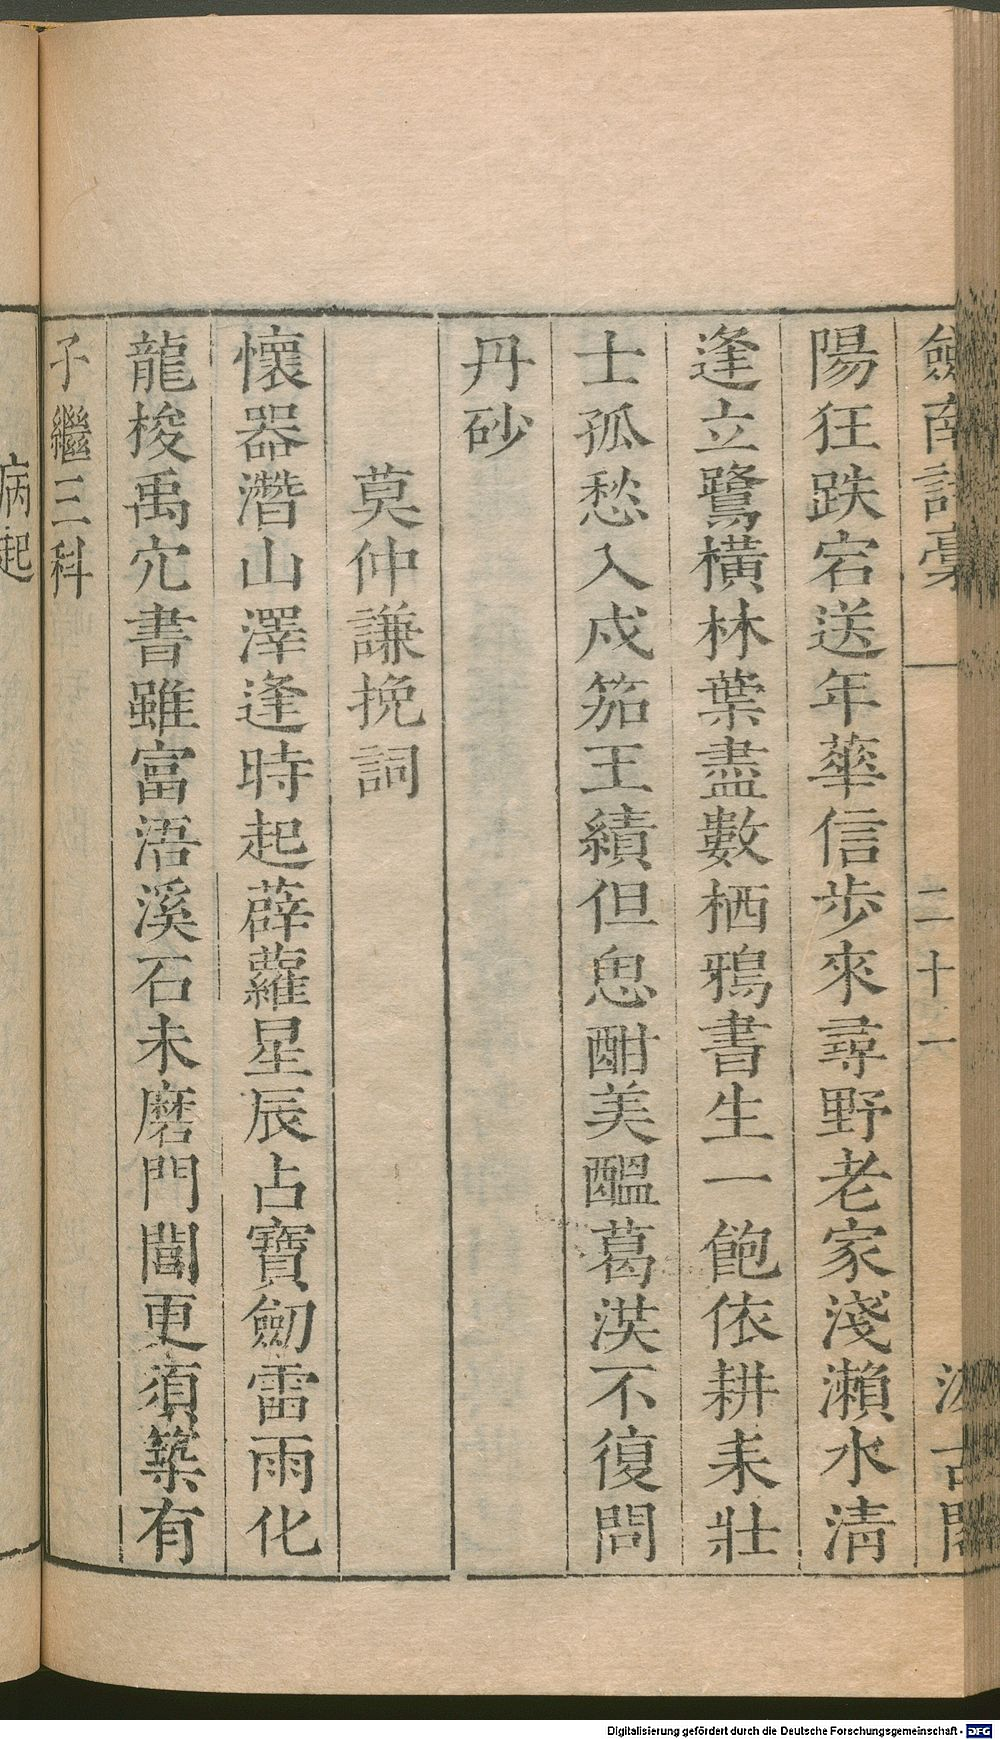 劔南詩稾 二十一 汲古閣
陽狂跌宕送年華信步來尋野老家淺瀨水清
逢立鷺橫林葉盡數栖鴉書生一飽依耕耒壯
士孤愁入戍笳王績但思酣美醞葛洪不復問
丹砂
莫仲謙挽詞
懷器潛山澤逢時起薜蘿星辰占寶劒雷雨化
龍梭禹穴書雖富浯溪石未磨門閭更須築有
子繼三科
病起
Digitalisierung gefördert durch die Deutsche Forschungsgemeinschaft - DFG